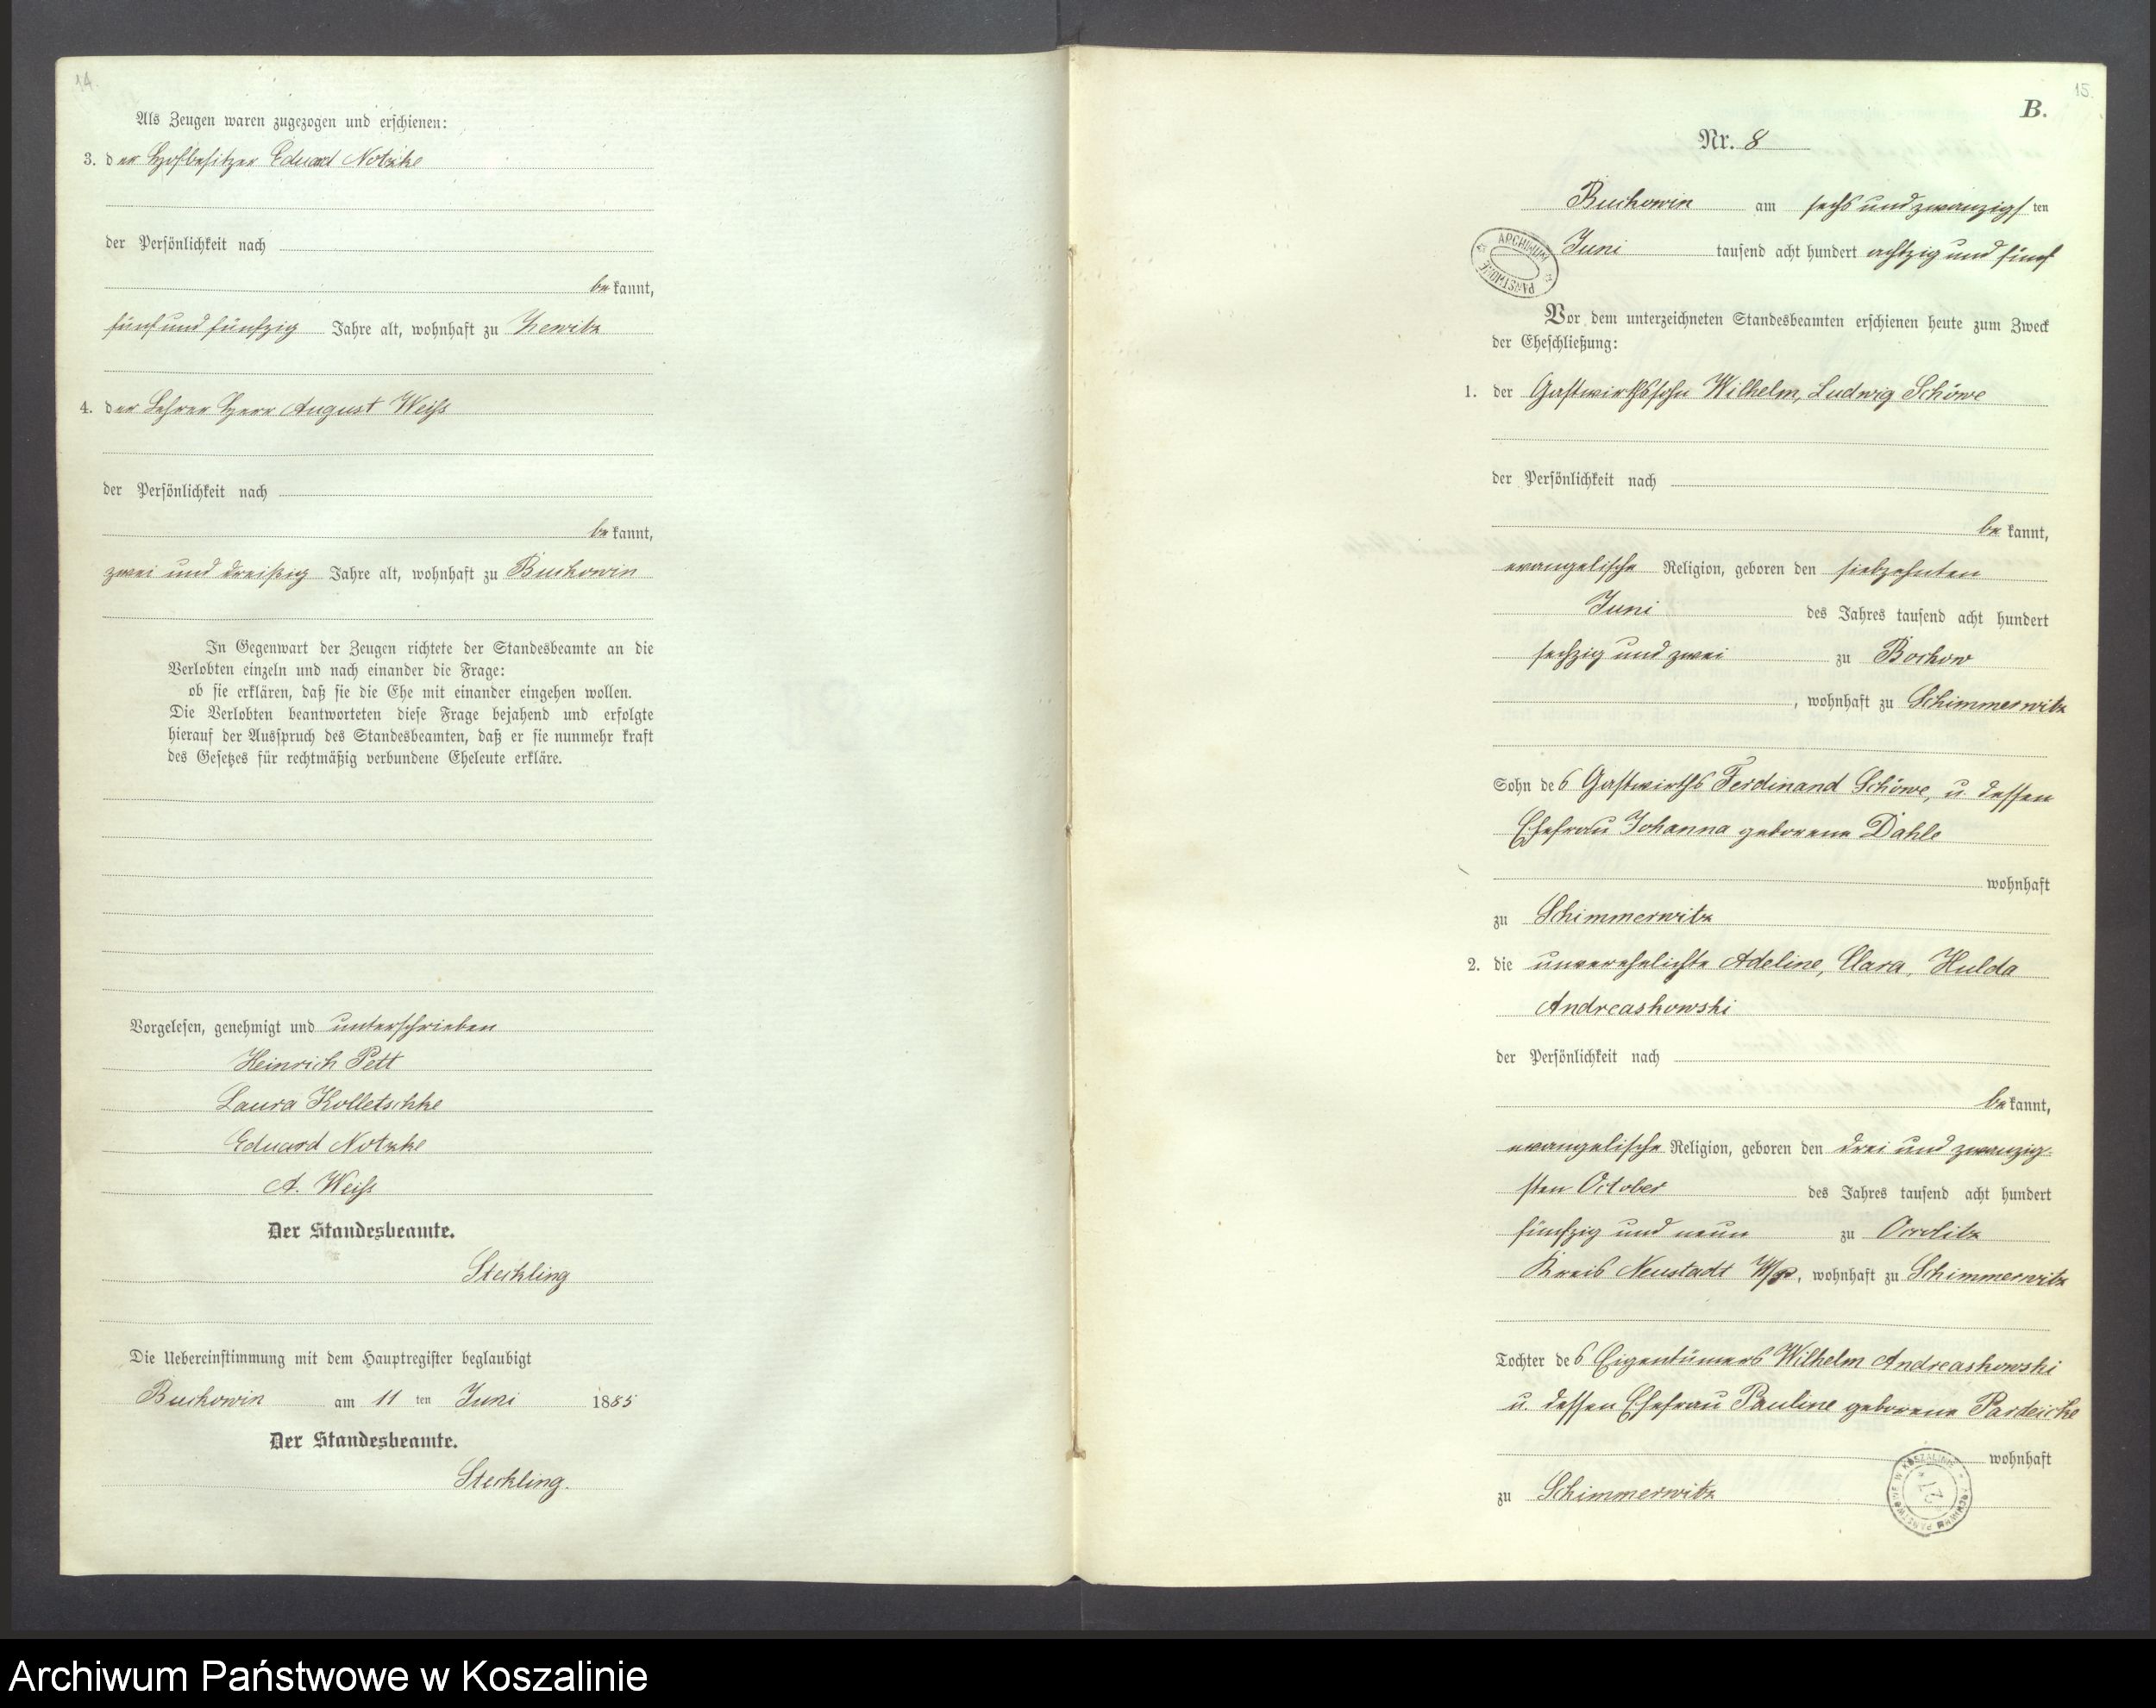 14.
Als Zeugen waren zugezogen und erschienen:
3. der Hofbesitzer Eduard Notzke
der Persönlichkeit nach
bekannt,
fünf und fünfzig Jahre alt, wohnhaft zu Zewitz
4. der Lehrer Herr August Weiß
der Persönlichkeit nach
bekannt,
zwei und dreißig Jahre alt, wohnhaft zu Buckowin
In Gegenwart der Zeugen richtete der Standesbeamte an die
Verlobten einzeln und nach einander die Frage:
ob sie erklären, daß sie die Ehe mit einander eingehen wollen.
Die Verlobten beantworteten diese Frage bejahend und erfolgte
hierauf der Ausspruch des Standesbeamten, daß er sie nunmehr kraft
des Gesetzes für rechtmäßig verbundene Eheleute erkläre.
Vorgelesen, genehmigt und unterschrieben
Heinrich Pett
Laura Kolletschke
Eduard Notzke
A. Weiß
Der Standesbeamte.
Steckling
Die Uebereinstimmung mit dem Hauptregister beglaubigt
Buckowin am 11 ten Juni 1885
Der Standesbeamte.
Steckling.
15.
B.
Nr. 8
Buckowin am sechs und zwanzigsten
Juni tausend acht hundert achtzig und fünf
ARCHIWUM PAŃSTWOWE
Vor dem unterzeichneten Standesbeamten erschienen heute zum Zweck
der Eheschließung:
1. der Gastwirthssohn Wilhelm, Ludwig Schöwe
der Persönlichkeit nach
bekannt,
evangelische Religion, geboren den siebzehnten
Juni des Jahres tausend acht hundert
sechzig und zwei zu Bochow
, wohnhaft zu Schimmerwitz
Sohn des Gastwirths Ferdinand Schöwe, u. dessen
Ehefrau Johanna geborene Dahle
wohnhaft
zu Schimmerwitz
2. die unverehelichte Adeline, Clara, Hulda
Andreaskowski
der Persönlichkeit nach
bekannt,
evangelische Religion, geboren den drei und zwanzig-
sten October des Jahres tausend acht hundert
fünfzig und neun zu
Kreis Neustadt W/p, wohnhaft zu Schimmerwitz
Tochter des Eigentümers Wilhelm Andreaskowski
u. dessen Ehefrau Pauline geborene Pardeicke
wohnhaft
zu Schimmerwitz
ARCHIWUM PAŃSTWOWE W KOSZALINIE
Archiwum Państwowe w Koszalinie